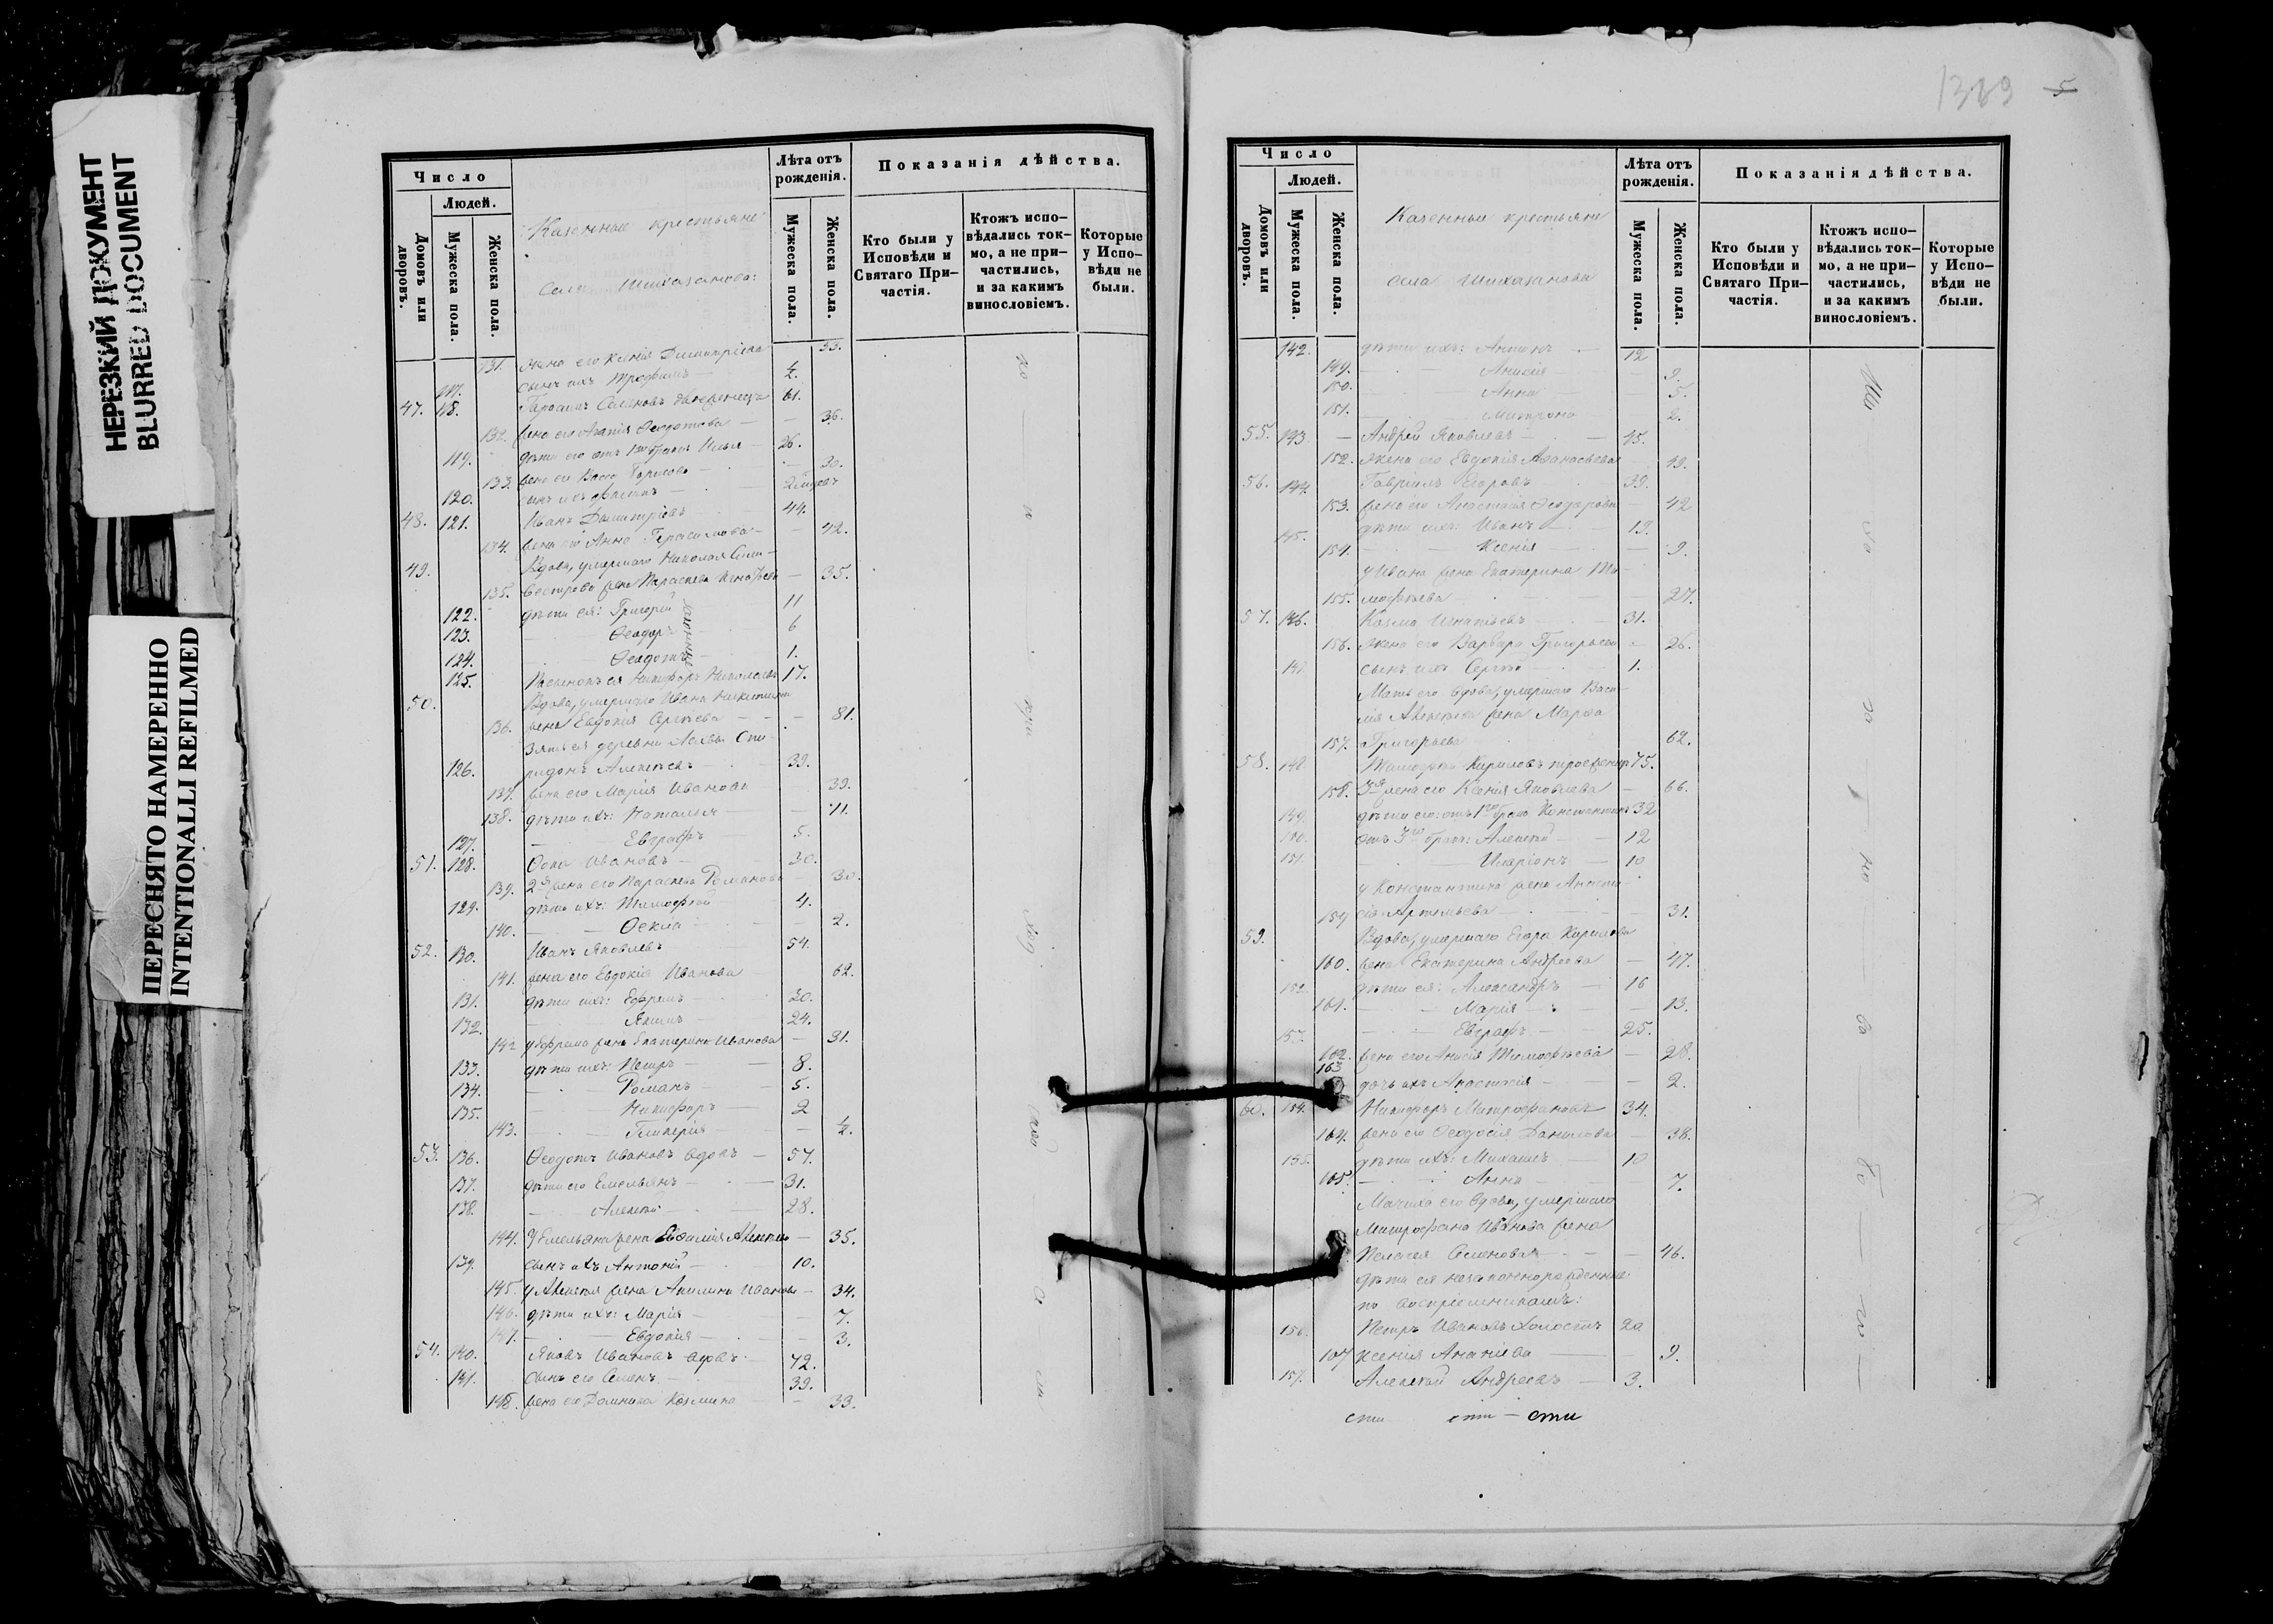 НЕРЕЗКИЙ ДОКУМЕНТ
BLURRED DOCUMENT
ПЕРЕСНЯТО НАМЕРЕННО
INTENTIONALLI REFILMED
Число
Людей.
Домовъ или дворовъ.
Мужеска пола.
Женска пола.
Казенные крестьяне
села Шихазанова:
Лѣта отъ рожденія.
Мужеска пола.
Женска пола.
Показанія дѣйства.
Кто были у Исповѣди и Святаго При-частія.
Ктожъ испо-вѣдались ток-мо, а не при-частились, и за какимъ винословіемъ.
Которые у Испо-вѣди не были.
131. жена его Ксенія Димитріева 33.
117. сынъ ихъ Трофимъ — ½.
47. 118. Герасимъ Семеновъ двоеженецъ 61.
132. жена его Агапія Ѳеодотова — — 36.
119. дѣти его отъ 1го брака Илья — 26.
133. жена его Васса Борисова — — 30.
120. сынъ ихъ
48. 121. Иванъ Димитріевъ 44.
134. жена его Анна Герасимова — — 42.
49. Вдова, умершаго Николая Сили-
135. вестрова жена Параскева — 35.
122. дѣти ея: Григорій 11
123. — Ѳеодоръ 6
124. — Ѳеодотъ 1.
125. Пасынокъ ея Никифоръ Николаевъ 17.
50. Вдова, умершаго Ивана Никитина
136. жена Евдокія Сергѣева — — — 81.
Зять ея деревни Спи-
126. ридонъ Алексѣевъ — 39.
137. жена его Марія Иванова 39.
138. дѣти ихъ: Наталья — 11.
127. — Евграфъ 5.
51. 128. Ѳома Ивановъ — 30.
139. 2я жена его Параскева Романова — 30.
129. дѣти ихъ: Тимофей 4.
140. — Ѳекла — — 2.
52. 130. Иванъ Яковлевъ 54.
141. жена его Евдокія Иванова 62.
131. дѣти ихъ: Ефремъ — 30.
132. — Якимъ — 24.
142 у Ефрема жена Екатерина Иванова — 31.
133. дѣти ихъ: Петръ — 8.
134. — Романъ — 5.
135. — Никифоръ — 2
143. — Гликерія — — ½.
53. 136. Ѳеодотъ Ивановъ вдовъ — 57.
137. дѣти его Емельянъ — 31.
138. — Алексѣй — 28.
144. У Емельяна жена Алексѣева — 35.
139. сынъ ихъ Антоній — 10.
145. у Алексѣя жена Акилина Иванова — 34.
146. дѣти ихъ: Марія — — 7.
147. — Евдокія — 3.
54. 140. Яковъ Ивановъ вдовъ. 72.
141. сынъ его Семенъ — 39.
148. жена его Домника Козмина — 33.
1389 5
Число
Людей.
Домовъ или дворовъ.
Мужеска пола.
Женска пола.
Казенныи крестьяне
села Шихазанова
Лѣта отъ рожденія.
Мужеска пола.
Женска пола.
Показанія дѣйства.
Кто были у Исповѣди и Святаго При-частія.
Ктожъ испо-вѣдались ток-мо, а не при-частились, и за какимъ винословіемъ.
Которые у Испо-вѣди не были.
142. дѣти ихъ: Антонъ — 12
149. — Анисія — 9.
150. — Анна — 5.
151. — Матрона — 2.
55. 143 — Андрей Яковлевъ — 45.
152. жена его Евдокія Аѳанасьева 49.
56. 144. Гавріилъ Егоровъ — 39.
153. жена его Анастасія Ѳеодорова — 42
145. дѣти ихъ: Иванъ — 19.
154. — Ксенія — 9.
у Ивана жена Екатерина Ти-
155. мофѣева — — 21.
57. 146. Козма Игнатьевъ — 31.
156. жена его Варвара Григорьева — 26.
147 сынъ ихъ Сергѣй — 1.
Мать его вдова, умершаго Васи-
лія Алексѣева жена Марѳа
157. Григорьева 62.
58. 148 Тимофѣй Кириловъ троеженецъ 75.
158. 3я жена его Ксенія Яковлева — 66.
149. дѣти его: отъ 1го брака Константинъ 32
150. отъ 3го брака: Алексѣй — 12
151. — Иларіонъ — 10
у Константина жена Анаста-
159 сія Артемьева — — 31.
59. Вдова, умершаго Егора Кирилова
160. жена Екатерина Андреева — 47.
152. дѣти ея: Александръ — 16
161. — Марія — — 13.
153. — Евграфъ — 25.
162. жена его Анисія Тимофѣева — 28.
163 дочь ихъ Анастасія — — 2.
60. 154. Никифоръ Митрофановъ 34.
164. жена его Ѳеодосія Данилова — 38.
155. дѣти ихъ: Михаилъ — 10
165. — Анна — 7.
Мачиха его вдова, умершаго
Митрофана Иванова жена
Пелагея Семенова — — 46.
дѣти ея незаконнорожденные
по воспріемникамъ:
156. Петръ Ивановъ холостъ 20
167 Ксенія Ананіева — 9.
157. Алексѣй Андреевъ — 3.
сти сти — сти